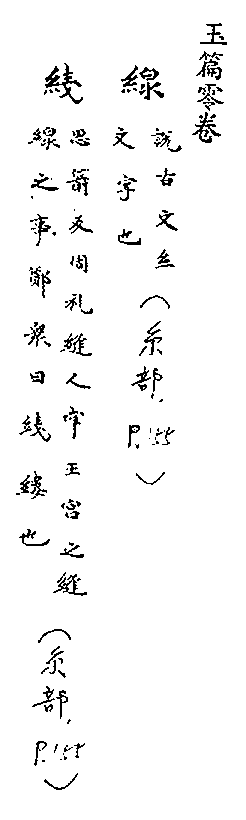 玉篇零卷
線
說古文糸
文字也
(糸部, P.155)
綫
思箭反周礼縫人掌王宮之縫
線之事鄭衆曰綫縷也
(糸部, P.155)